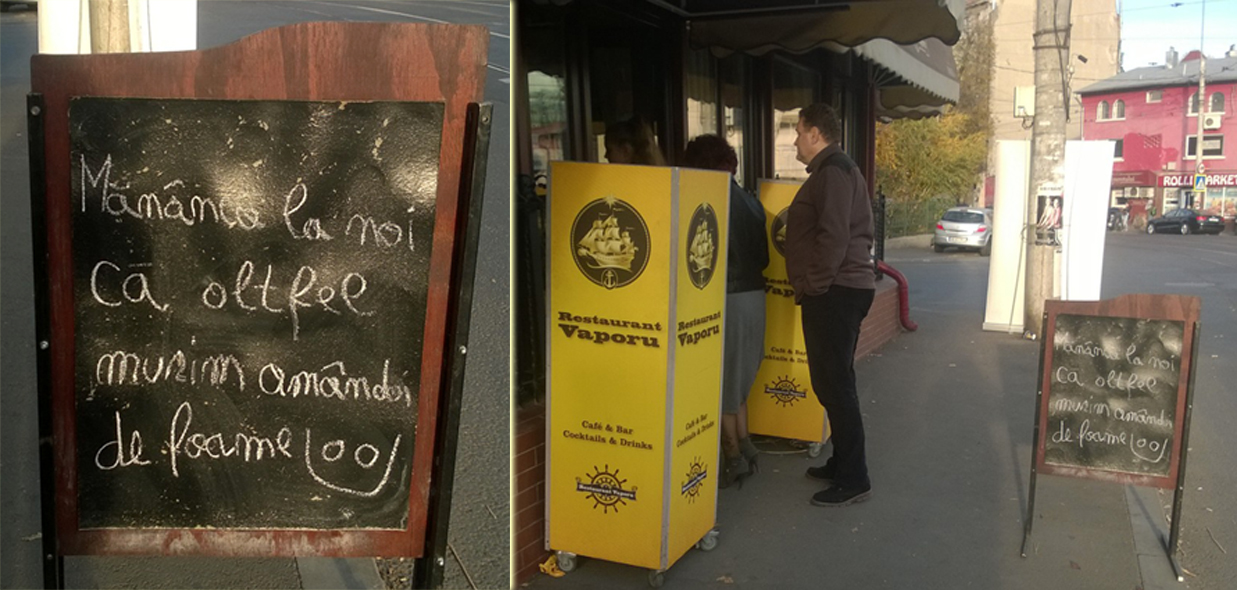 Mănâncă la noi
că altfel
murim amândoi
de foame
Restaurant
Vaporu
Café & Bar
Cocktails & Drinks
Restaurant Vaporu
Restaurant
Vaporu
Café & Bar
Cocktails & Drinks
Café &
ROLLI MARKET
la noi
că altfel
murim amândoi
de foame